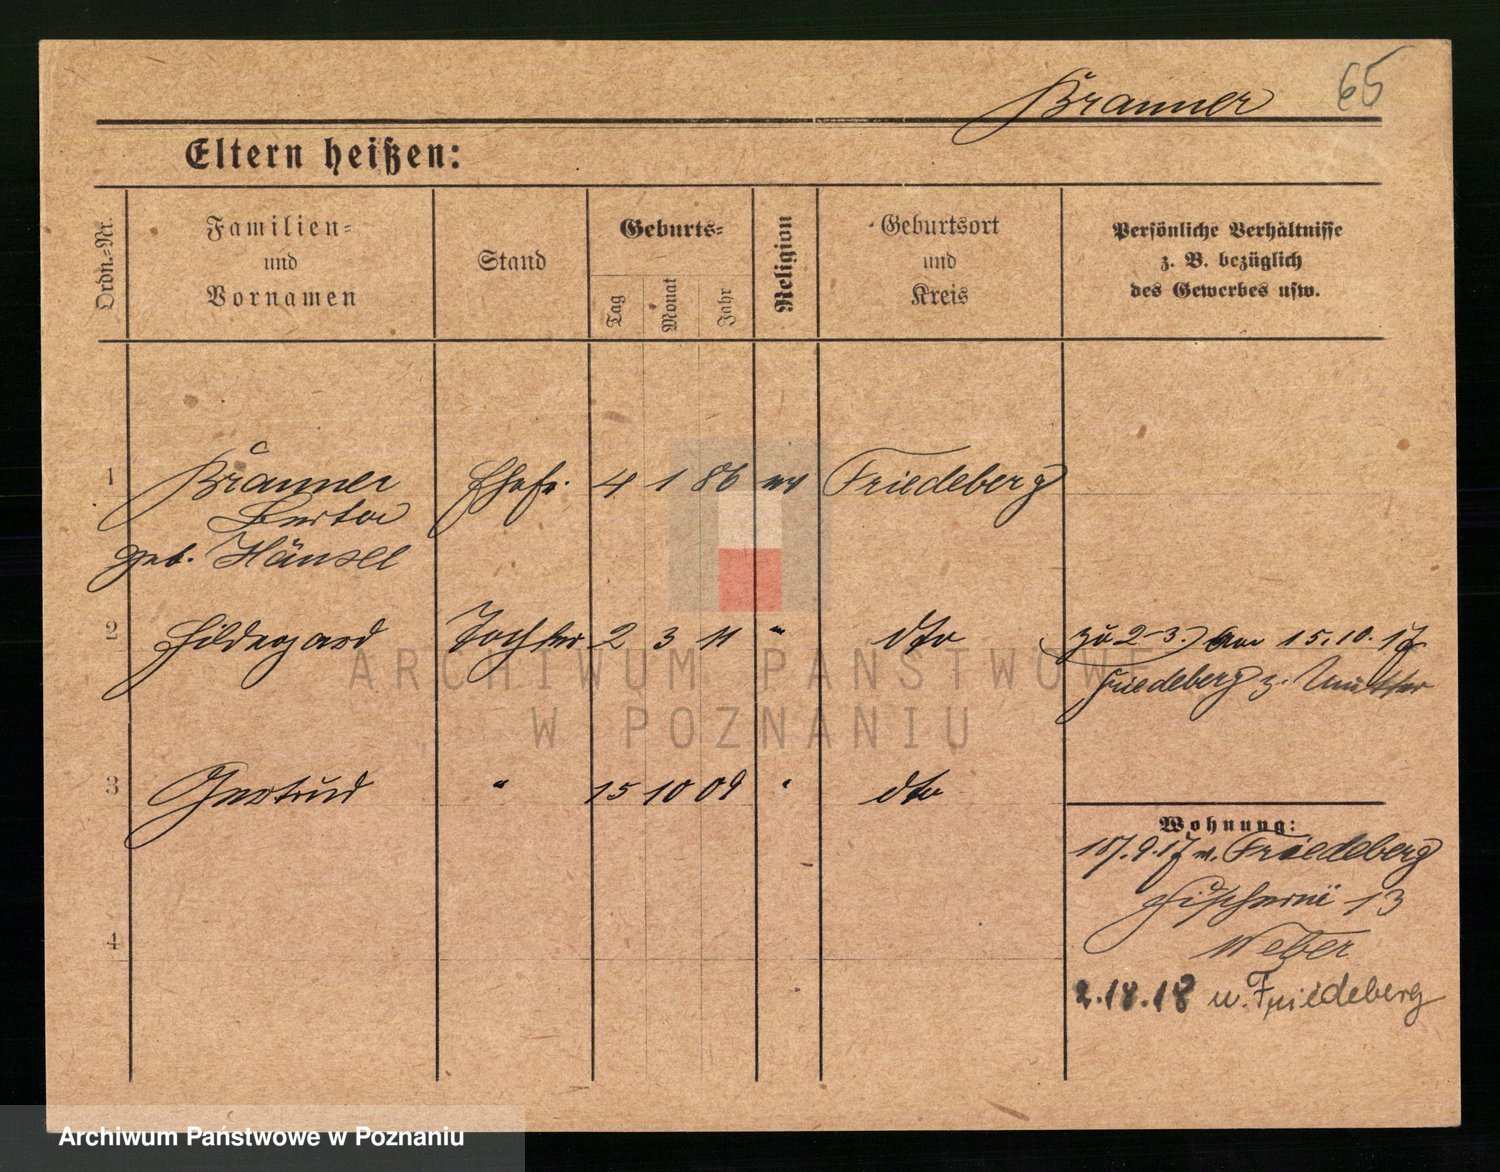 Branner 65
Eltern heißen:
Ordn.=Nr.
Familien=
und
Vornamen
Stand
Geburts=
Tag
Monat
Jahr
Religion
Geburtsort
und
Kreis
Persönliche Verhältnisse
z. B. bezüglich
des Gewerbes usw.
1 Branner Ehefr. 4 1 86 ev Friedeberg
Berta
geb. Hänsel
2 Hildegard Tochter 2 3 11 " dto zu 2-3. am 15.10.17
Friedeberg z. Mutter
3 Gertrud " 15 10 09 " dto
Wohnung:
9.17 v. Friedeberg
Fischerei 13
Weber
4
18 n. Friedeberg
ARCHIWUM PAŃSTWOWE
W POZNANIU
Archiwum Państwowe w Poznaniu